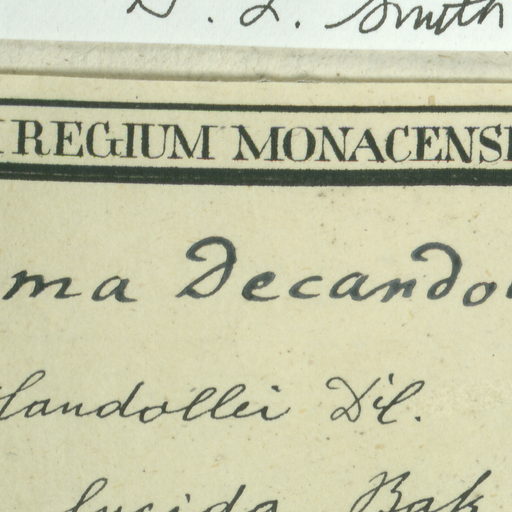 D. L. Smith
REGIUM MONACENS
ma Decando
andollei DC.
lucida Bak